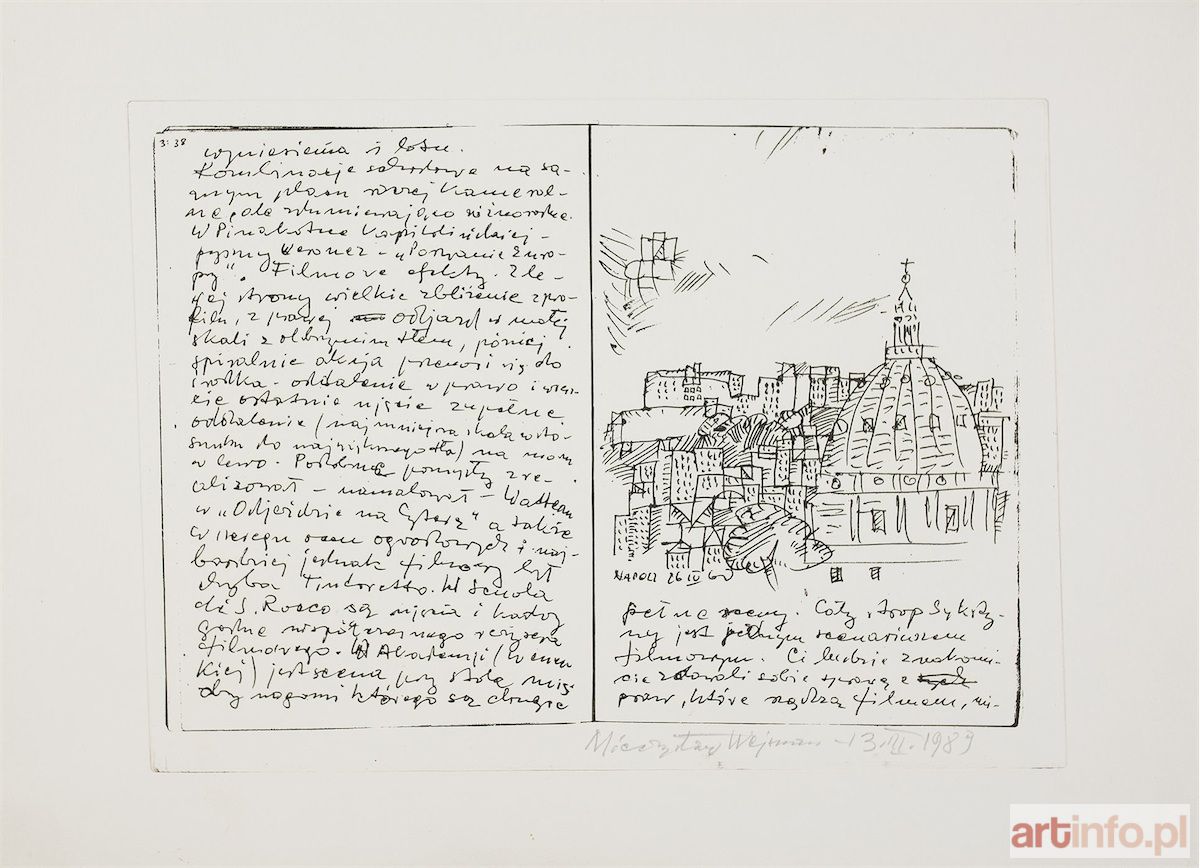 3:38
wyniesienia i lotu.
Kombinacje schodowe na sa-
mym planie raczej kameral-
ne, ale zdumiewająco różnorodne.
W Pinakotece Kapitolińskiej -
pyszny Weronez - „Porwanie Euro-
py". Filmowe efekty. Z le-
wej strony wielkie zbliżenie z pro-
filu, z prawej odjazd w małej
skali z olbrzymim tłem, później
spiralnie akcja przenosi się do
środka - oddalenie w prawo i
ostatnie ujęcie zupełne
oddalenie (najmniejsza skala w sto-
sunku do największego tła) na
w lewo. Podobne pomysły zre-
alizował - namalował - Watteau
w „Odjeździe na Cyterę" a także
w szeregu scen ogrodowych i naj-
bardziej jednak filmowy był
chyba Tintoretto. W Scuola
di S. Rocco są ujęcia i kadry
godne współczesnego reżysera
filmowego. W Akademji (w
kiej) jest scena przy stole mię-
dzy nogami którego są drugie
NAPOLI 26 IV 60
pełne sceny. Cały strop Sykstyn-
ny jest pełnym scenariuszem
filmowym. Ci ludzie znakomi-
cie zdawali sobie sprawę z
praw, które rządzą filmem, mi-
Mieczysław Wejman - 13.VI.1989
artinfo.pl